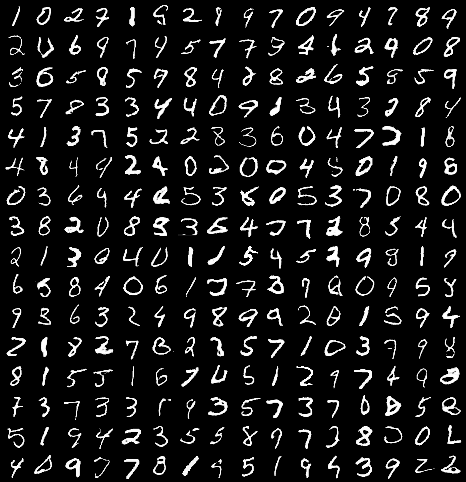 1 0 2 7 1 9 2 8 9 7 0 9 4 7 8 9
2 0 6 9 7 4 5 7 7 9 4 1 2 9 0 8
3 6 5 8 5 7 8 4 2 8 2 6 5 8 5 9
5 7 8 3 3 4 4 0 9 1 3 4 3 2 8 4
4 1 3 7 5 2 2 8 3 6 0 4 7 2 1 8
4 8 4 9 2 4 0 2 0 0 4 5 0 1 9 8
0 3 6 9 4 2 5 3 8 0 5 3 7 0 8 0
3 8 2 0 8 8 3 6 4 7 7 2 8 5 4 4
2 1 3 0 4 0 1 1 5 4 5 2 9 8 1 9
6 5 8 4 0 6 1 7 7 3 9 0 0 9 5 8
9 3 6 3 2 4 9 8 9 9 2 0 1 5 9 4
2 1 8 2 7 8 2 3 5 7 1 0 3 7 9 8
8 1 5 5 1 6 7 4 5 1 2 9 7 4 9 2
7 3 7 3 3 9 3 5 7 3 7 0 8 5 8
5 1 9 4 2 3 5 5 8 9 7 3 8 0 2
4 0 9 7 7 8 1 9 5 1 9 4 3 9 2 2